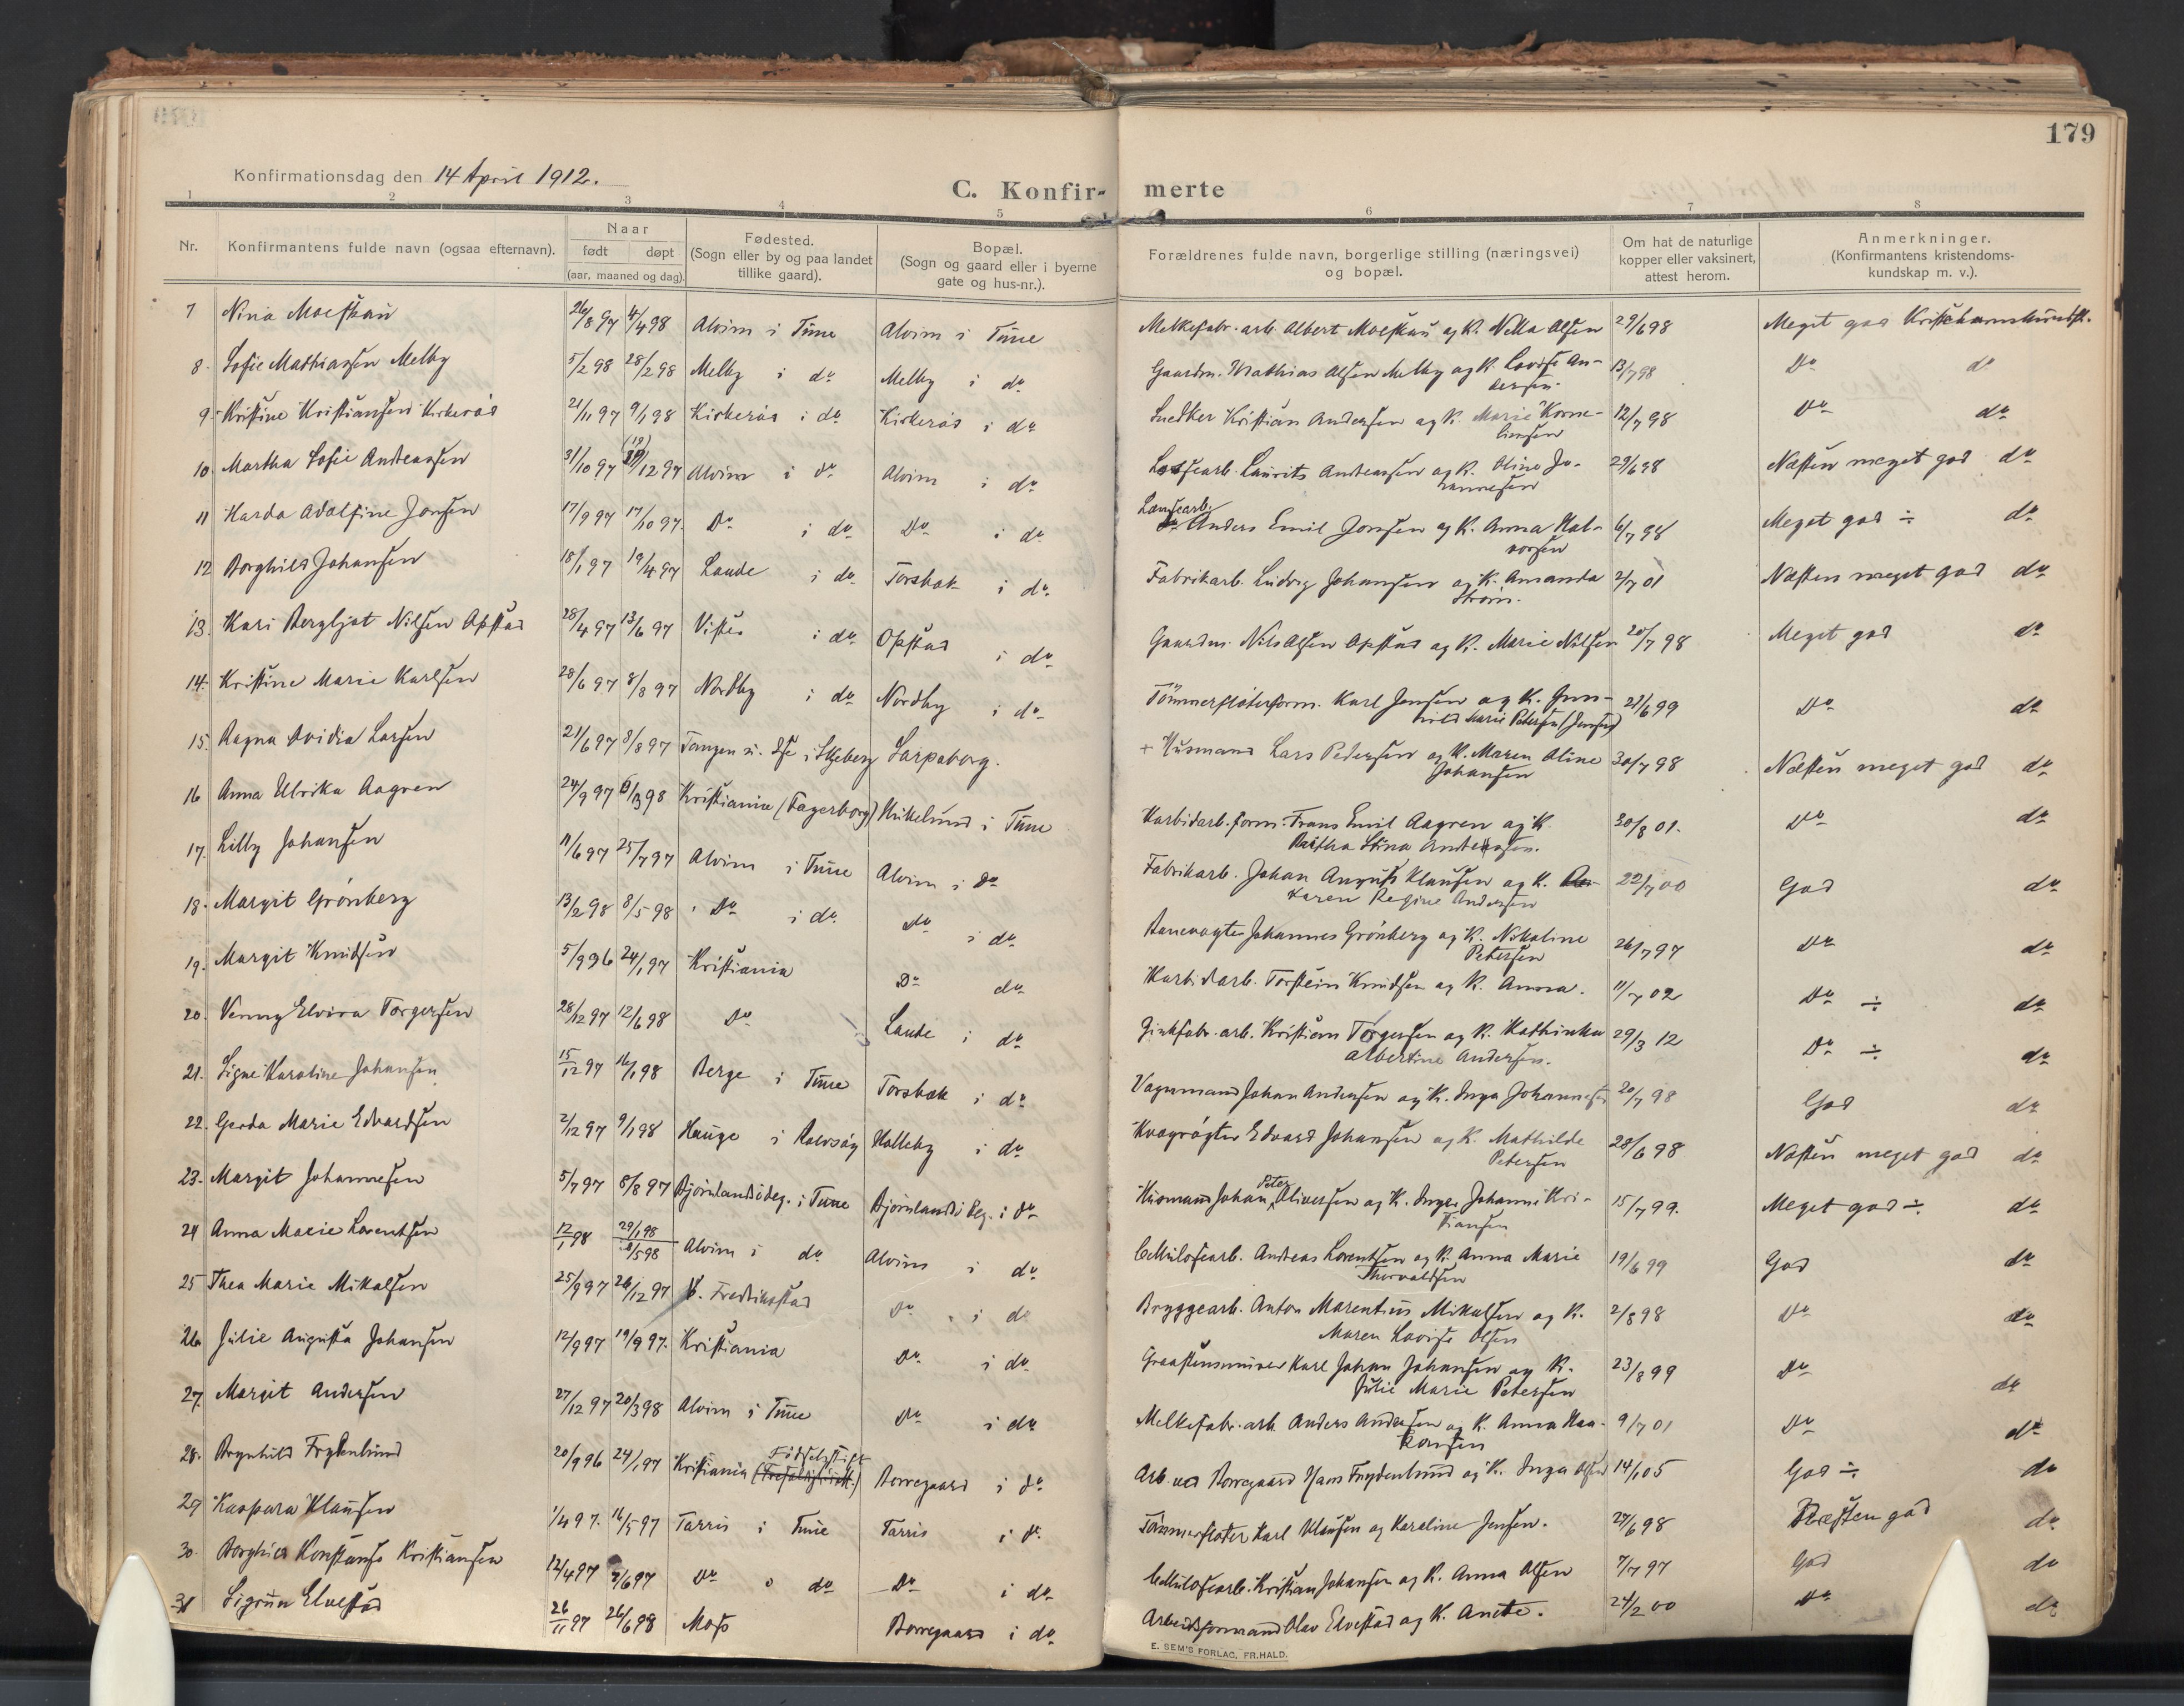 179
Konfirmationsdag den 14 April 1912.
C. Konfir- merte
1 2 3 4 5 6 7 8
Nr. Konfirmantens fulde navn (ogsaa efternavn). Naar født døpt (aar, maaned og dag). Fødested. (Sogn eller by og paa landet tillike gaard). Bopæl. (Sogn og gaard eller i byerne gate og hus-nr.). Forældrenes fulde navn, borgerlige stilling (næringsvei) og bopæl. Om hat de naturlige kopper eller vaksinert, attest herom. Anmerkninger. (Konfirmantens kristendoms- kundskap m. v.).
7 Nina Moeskau 26/8 97 4/4 98 Alvim i Tune Alvim i Tune Melkefabr. arb. Albert Moeskau og K. Nella Olsen 29/6 98 Meget god Kristendomskundsk.
8. Sofie Mathiassen Melby 5/2 98 28/2 98 Melby i do Melby i do Gaardm. Mathias Olsen Melby og K. Lovise An-
dersen. 13/7 98 Do d
9. Kristine Kristiansen Kirkerøs 21/11 97 9/1 98 Kirkerøs i do Kirkerøs i do Snedker Kristian Andersen og K. Marie Korne-
liussen 12/7 98 Do do
10. Martha Sofie Andreassen 31/10 97 (19) 12 97 Alvim i do Alvim i do Lossearb. Laurits Andreassen og K. Oline Jo-
hannesen 29/6 98 Næsten meget god do
11 Harda Adolfine Jonsen 17/9 97 17/10 97. Do i do Do i do Lansearb.
Anders Emil Jonsen og K. Anna Hal-
vorsen 6/7 98 Meget god ÷ do
12 Borghild Johansen 18/1 97 19/4 97 Lande i do Torsbæk i do Fabrikarb. Ludvig Johansen og K. Amanda
Strøm. 2/7 01 Næsten meget god do
13. Kari Bergljot Nilsen Opstad 28/4 97 13/6 97 Visten i do Opstad i do Gaardm. Nils Olsen Opstad og K. Marie Nilsen 20/7 98 Meget god do
14. Kristine Marie Karlsen 28/6 97 8/8 97 Nordby i do Nordby i do Tømmerfløterform. Karl Jensen og K. Gun-
hild Marie Petersen (Jensen) 21/6 99 Do do
15. Ragna Ovidia Larsen 21/6 97 8/8 97 Tangen i Skjeberg Sarpsborg. + Husmand Lars Pedersen og K. Maren Oline
Johansen 30/7 98 Næsten meget god do
16 Anna Ulrika Aagren 24/9 97 6/3 98 Kristiania (Fagerborg) Mikelund i Tune Karbidarb. form. Frans Emil Aagren og K.
Stina Andersen. 30/8 01. Do do
17. Lilly Johansen 11/6 97 25/7 97 Alvim i Tune Alvim i do Fabrikarb. Johan August Klausen og K.
Karen Regine Andersen 22/7 00 God do
18. Margit Grønberg 13/2 98 8/5 98 Do i do. Do i do Banevogter Johannes Grønberg og K. Nikoline
Petersen 26/7 97 Do do
19. Margit Knudsen 5/9 96 24/1 97 Kristiania Do do Karbidarb. Torstein Knudsen og K. Anna. 11/7 02 Do ÷ do
20. Venny Elvira Torgersen 28/12 97 12/6 98 Do Lande i do Zinkfabr. arb. Kristian Torgersen og K. Kathinka
Albertine Andersen. 29/3 12 Do ÷ do
21. Signe Karoline Johansen 15/12 97 16/1 98 Berge i Tune Torsbæk i do Vognmand Johan Andersen og K. Inga Johannesen 20/7 98 God do
22. Gerda Marie Edvardsen 2/12 97 9/1 98 Hauge i Rolvsøy Halleby i do Kvægrøgter Edvard Johansen og K. Mathilde
Petersen 28/6 98 Næsten meget god do
23. Margit Johannesen 5/7 97 8/8 97 Bjørnlandsødeg. i Tune Bjørnlandsødeg. i do Husmand Johan Peter Oliversen og K. Inger Johanne Kri-
stiansen 15/7 99. Meget god ÷ do
24 Anna Marie Lorentsen 12/1 98 29/1 98
8/5 98 Alvim i do Alvim i do Cellulosearb. Andreas Lorentsen og K. Anna Marie
Thorvaldsen 19/6 99 God do
25 Thea Marie Mikalsen 25/9 97 26/12 97 V. Fredrikstad Do i do Bryggearb. Anton Marentius Mikalsen og K.
Maren Lovise Olsen 2/8 98 Do do
26 Julie Augusta Johansen 12/9 97 19/9 97. Kristiania Do i do Graastensmurer Karl Johan Johansen og K.
Julie Marie Petersen 23/8 99 Do do
27. Margit Andersen 27/12 97 20/3 98 Alvim i Tune Do i do Melkefabr. arb. Anders Andersen og K. Anna Haa-
konsen 9/7 01 Do do
28. Brynhild Frydenlund 20/9 96 24/1 97 Kristiania Fødselsstift. Borregaard i do Arb. ved Borregaard Hans Frydenlund og K. Inga Olsen 14/1 05 God ÷ do
29 Kaspara Klausen 1/4 97. 16/5 97 Tarris i Tune Tarris i do. Tømmerfløter Karl Klausen og Karoline Jensen. 27/6 98 Næsten god do
30. Borghild Konstanse Kristiansen 12/4 97 7/6 97 Do do Do i do Cellulosearb. Kristian Johansen og K. Anna Olsen 7/7 97 God do
31 Sigrun Elvestad 26/11 97 26/6 98 Moss Borregaard i do Arbeidsformand Olav Elvestad og K. Anette. 24/2 00 Do do
E. SEM'S FORLAG, FR.HALD.